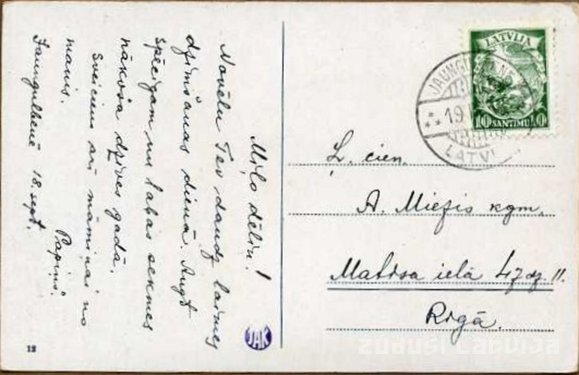 Mīļo dēliņ!
Novēlu Tev daudz laimes
dzimšanas dienā. Augt
spēcīgam un labas sekmes
nākošā dzīves gadā.
Sveicieni arī māmiņai no
manis.
Papiņš.
Jaungulbenē 18. sept.
12
JAK
LATVIJA
10 SANTIMU 10
19
LATVI
Ļ. cien.
A. Miezis kgm.
Matīsa ielā 47 dz. 11.
Rīgā.
zudusi Latvija